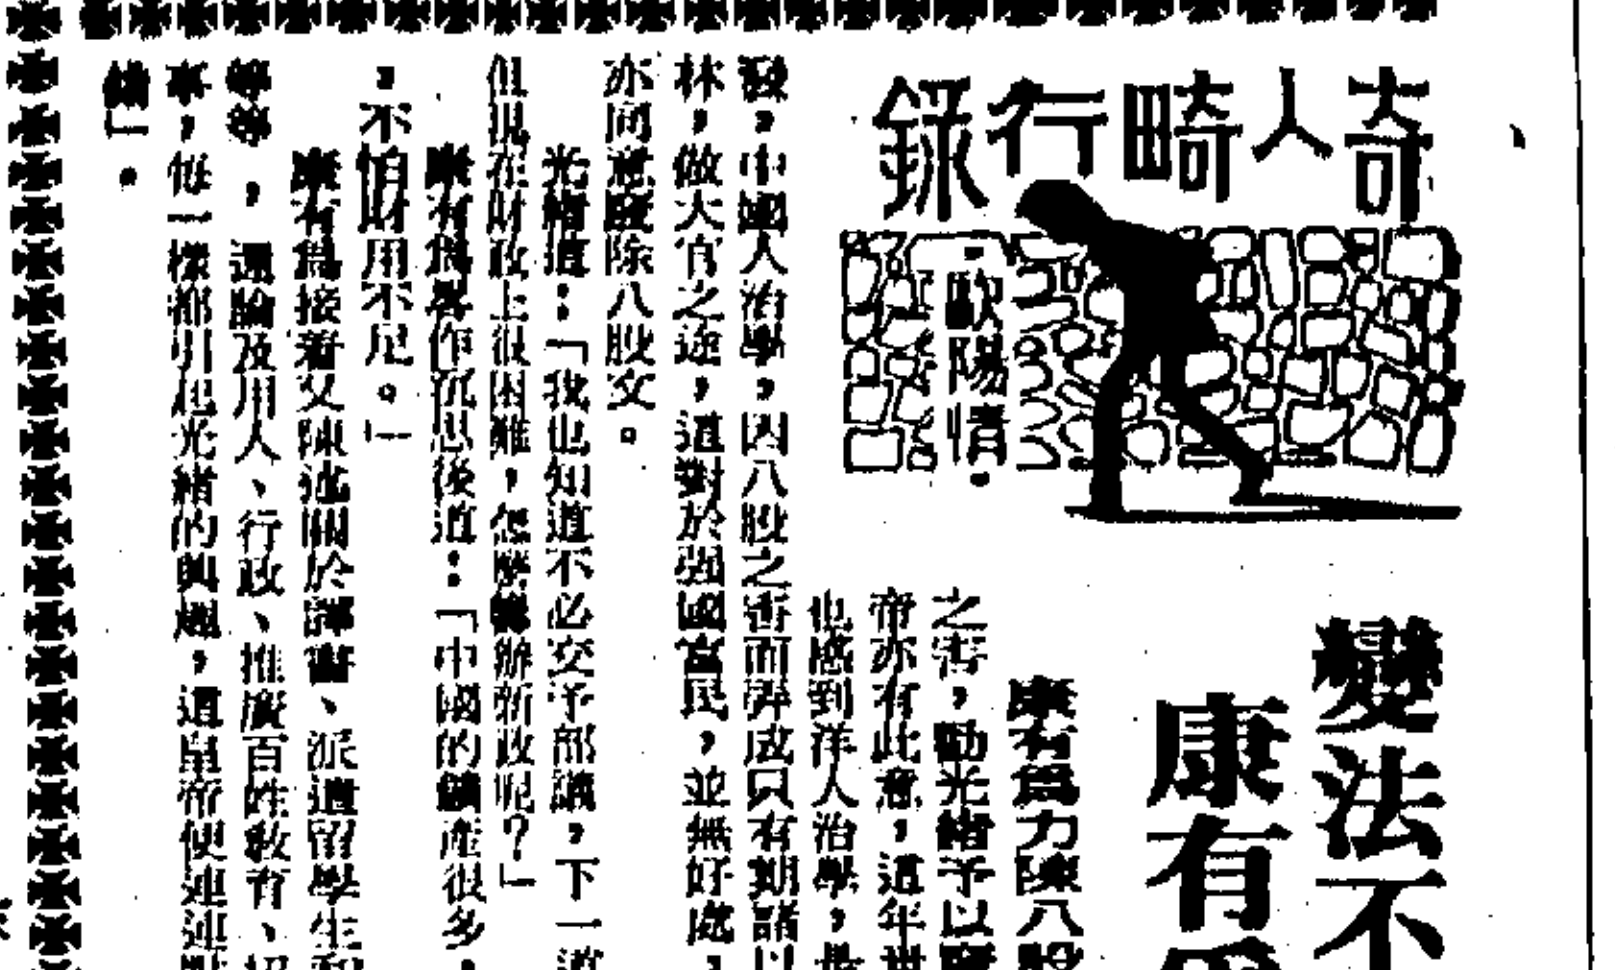 奇人畸行錄
·歐陽情·
變法不
康有為
康有為力陳八股
之害，勸光緒予以廢
帝亦有此意，這年世
也感到洋人治學，是
發，中國人治學，因八股之害而弄成只有期諸以
林，做大官之途，這對於强國富民，並無好處，
亦同意廢除八股文。
光緒道：「我也知道不必交予部議，下一道
但現在財政上很困難，怎麼樣辦新政呢？」
康有為畧作沉思後道：「中國的礦產很多，
，不怕財用不足。」
康有為接着又陳述關於譯書、派遣留學生和
等等，還論及用人、行政、推廣百姓教育、
事，每一樣都引起光緒的興趣，這皇帝便連連點
錯」。